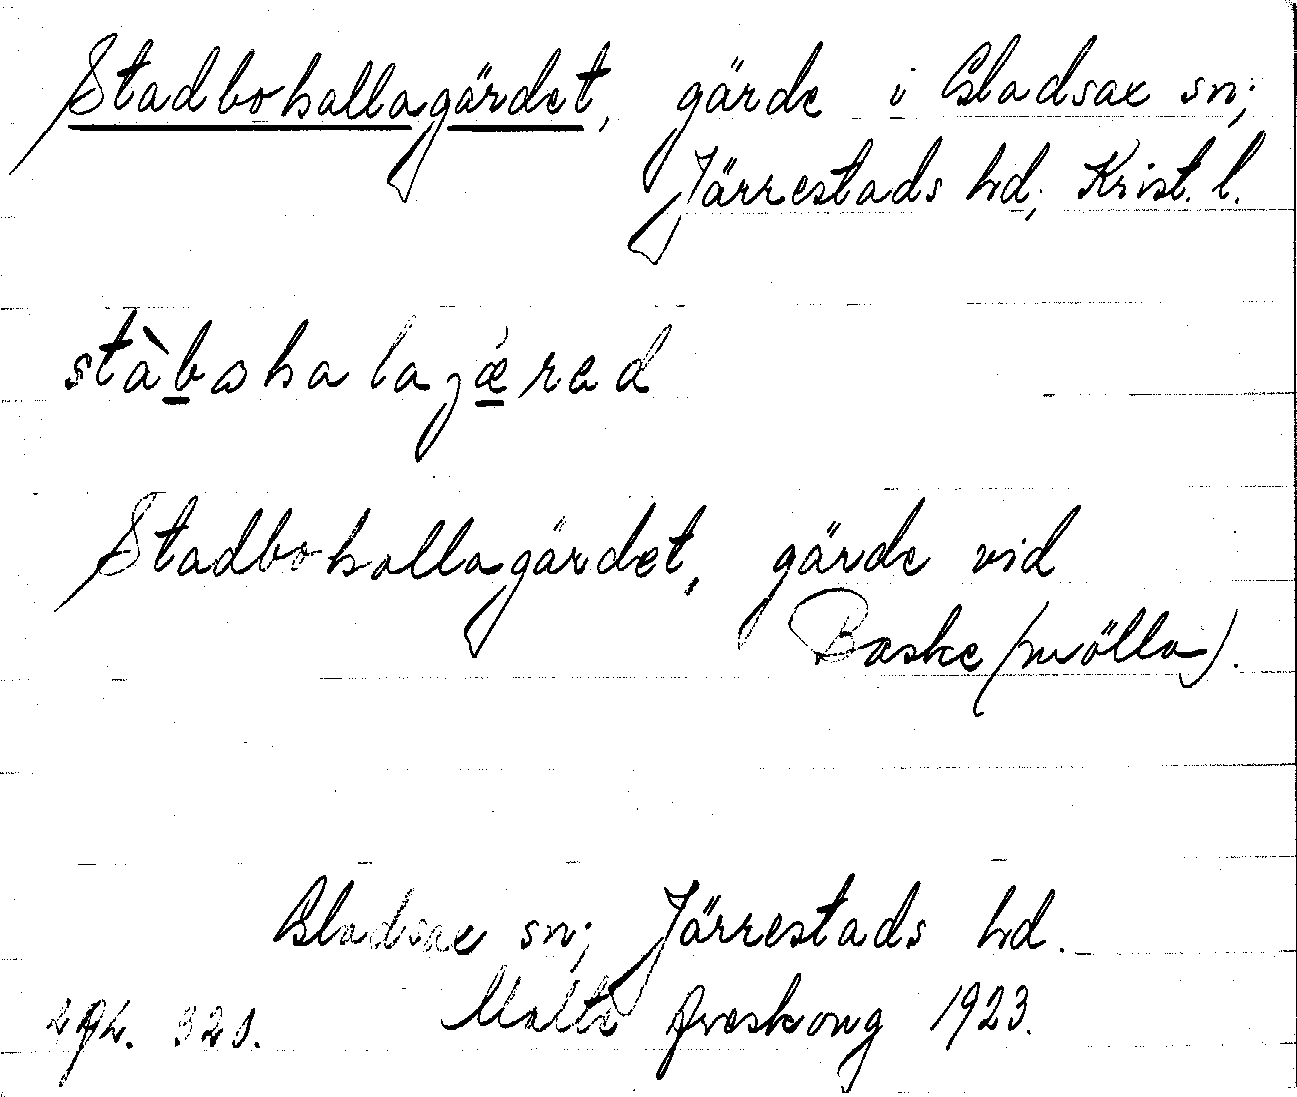 Stadbohallagärdet, gärde i Gladsax sn;
Järrestads hd; Krist. l.
stàbohalagærad
Stadbohallagärdet, gärde vid
Baske (mölla).
Gladsax sn; Järrestads hd.
Malte Areskoug 1923.